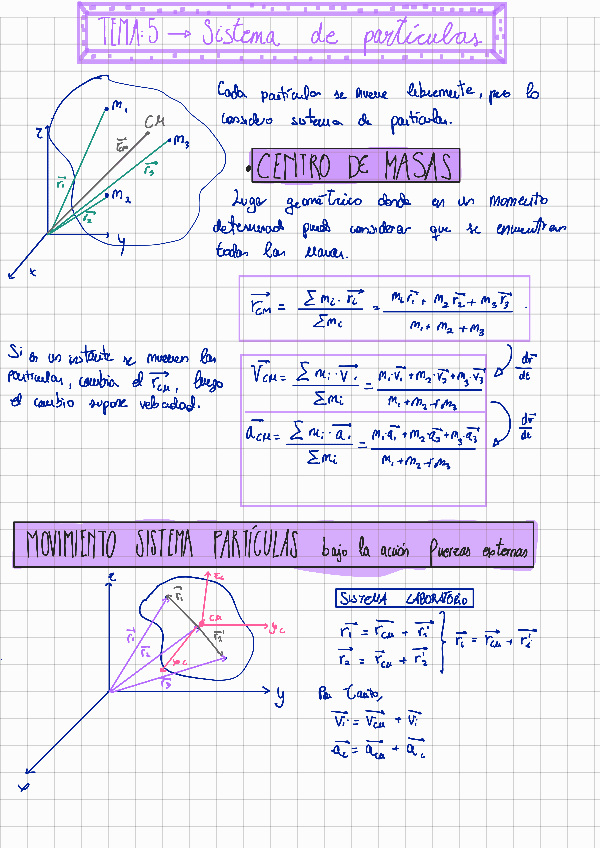 TEMA: 5 → Sistema de partículas
Cada partículas se mueve libremente, pero lo
considero sistema de partículas.
z
m₁
CM
m₃
r⃗cm
r⃗₁
r⃗₃
m₂
r⃗₂
y
x
• CENTRO DE MASAS
Lugar geométrico donde en un momento
determinado puedo considerar que se encuentran
todas las masas.
r⃗CM = Σ mi · r⃗i / Σ mi = m₁ r⃗₁ + m₂ r⃗₂ + m₃ r⃗₃ / m₁ + m₂ + m₃
Si en un instante se mueven las
partículas, cambia el r⃗CM, luego
el cambio supone velocidad.
V⃗CM = Σ mi · V⃗i / Σ mi = m₁ · v⃗₁ + m₂ · v⃗₂ + m₃ · v⃗₃ / m₁ + m₂ + m₃
dr⃗/dt
a⃗CM = Σ mi · a⃗i / Σ mi = m₁ · a⃗₁ + m₂ · a⃗₂ + m₃ · a⃗₃ / m₁ + m₂ + m₃
dv⃗/dt
MOVIMIENTO SISTEMA PARTÍCULAS bajo la acción fuerzas externas
z
zc
r⃗₁
CM
yc
r⃗₂'
r⃗₁
r⃗₂
xc
r⃗₃
y
x
SISTEMA LABORATORIO
r⃗₁ = r⃗CM + r⃗₁'
r⃗₂ = r⃗CM + r⃗₂'
r⃗i = r⃗CM + r⃗i'
Por tanto,
v⃗i = v⃗CM + v⃗i
a⃗i = a⃗CM + a⃗i